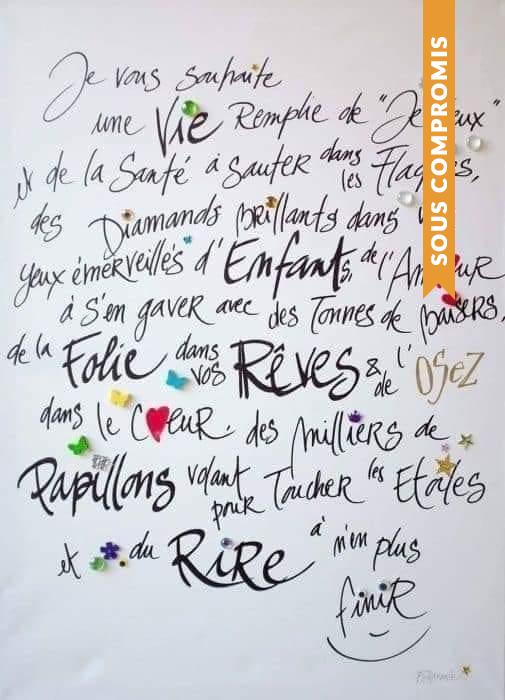 Je vous souhaite
une Vie Remplie de "Je eux"
et de la Santé à Sauter dans les Flaques,
des Diamands brillants dans
yeux émerveillés d'Enfants, de l'Amour
à S'en gaver avec des Tonnes de baisers,
de la Folie dans vos Rêves & de l'OSEZ
dans le Cœur, des milliers de
Papillons volant pour Toucher les Etoiles
et du RiRe à n'en plus
finiR
SOUS COMPROMIS